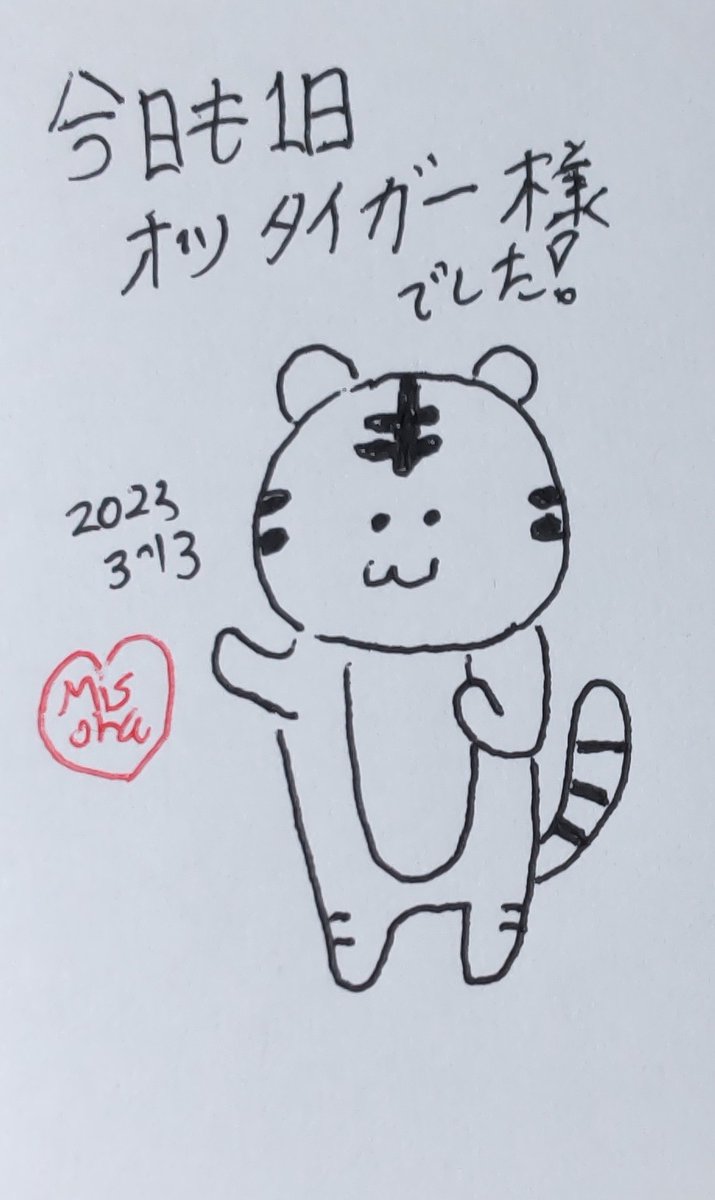 今日も1日
オツタイガー様
でした!
2023
3/13
Mis
ora